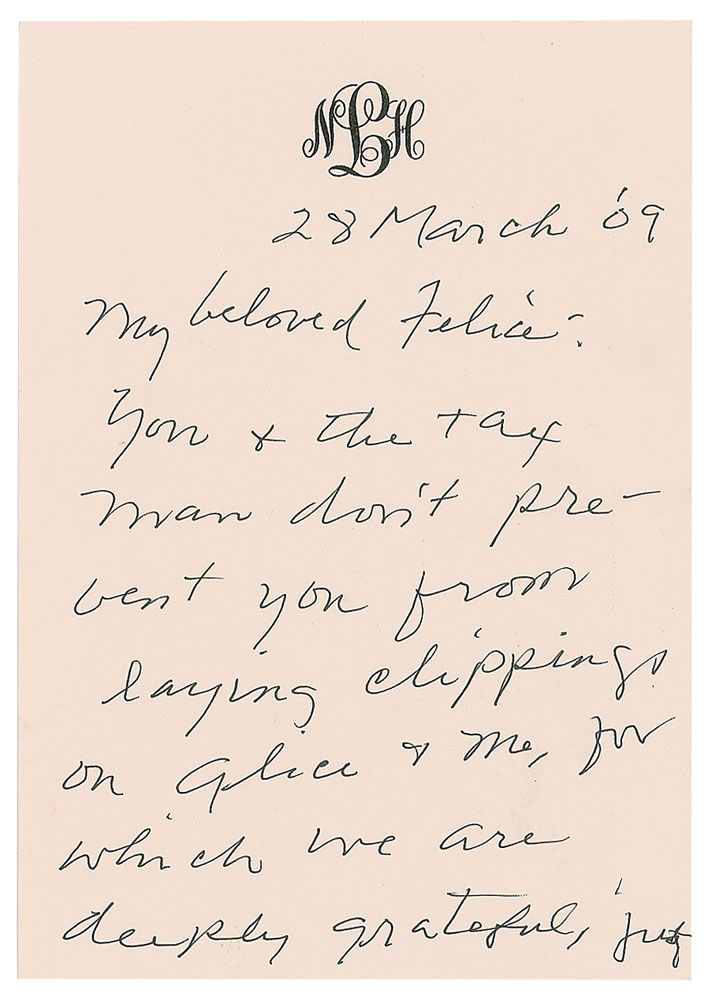 NLH
28 March '09
My beloved Felice:
You & the tax
man don't pre-
vent you from
laying clippings
on Alice & me, for
which we are
deeply grateful, just